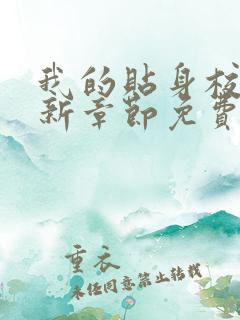 我的贴身校
新章节免费
重衣
未经同意禁止转载